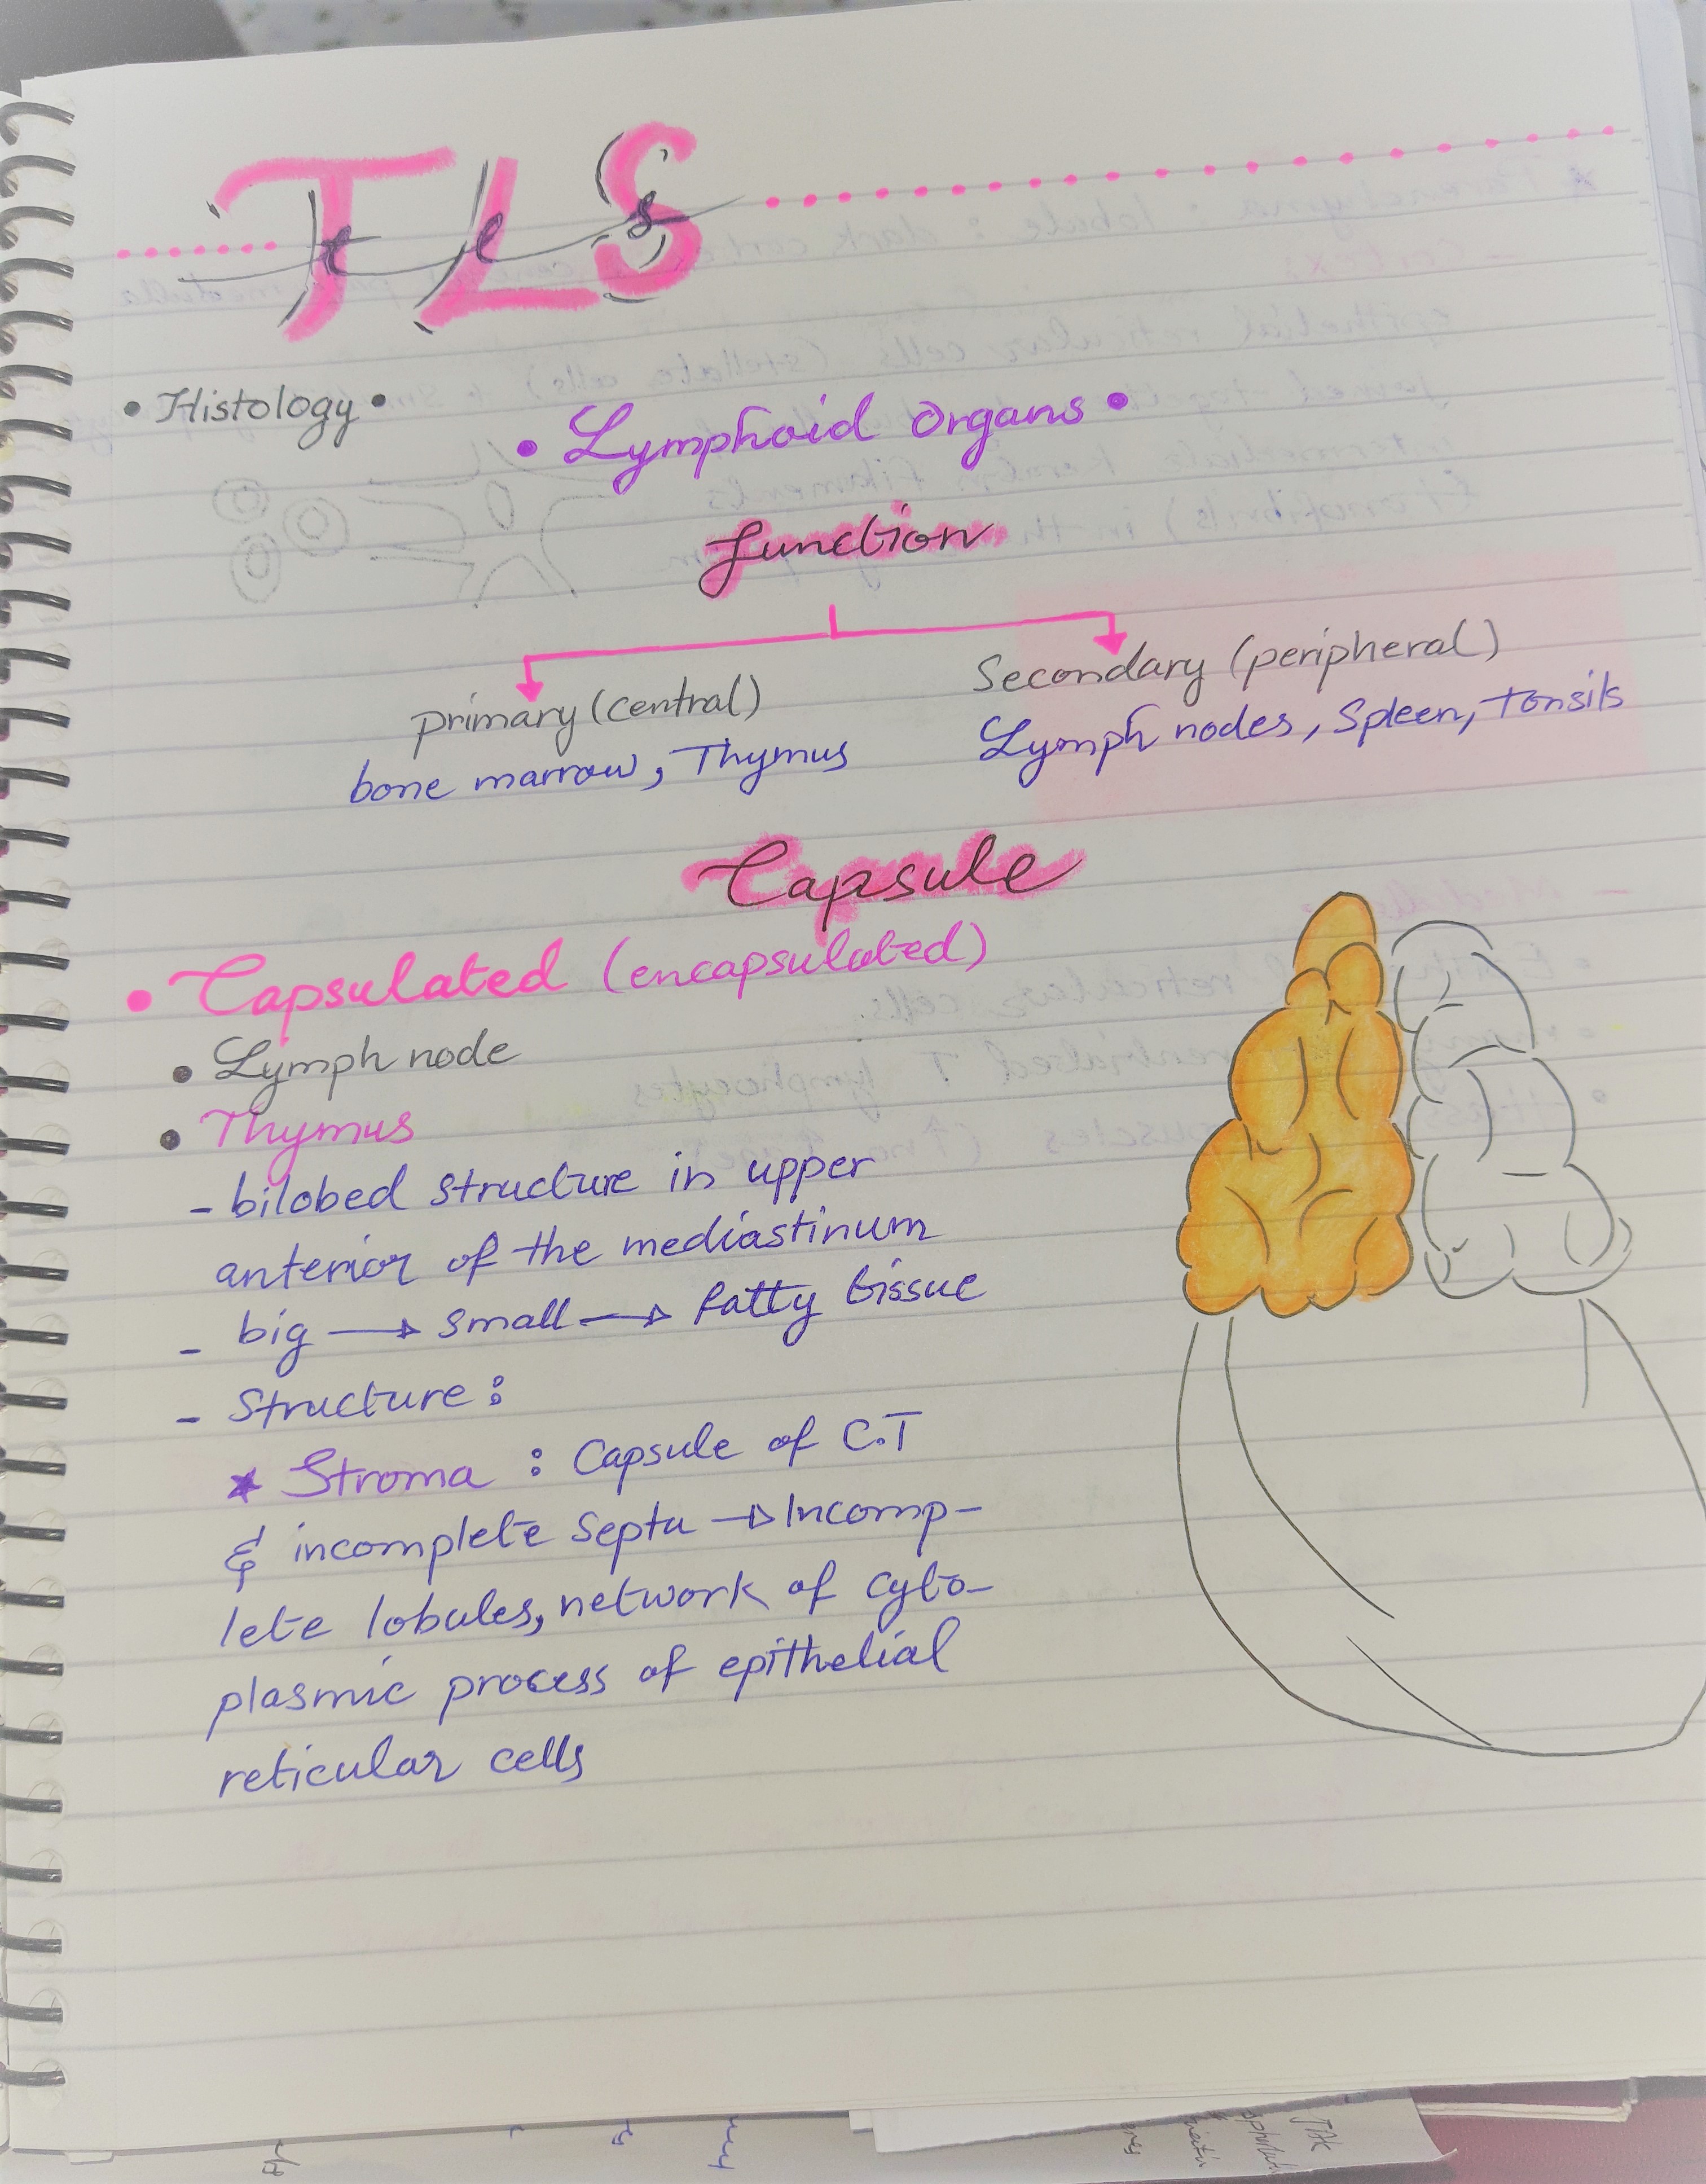 TLS
t l s
• Histology •
• Lymphoid Organs •
function
primary (central)
bone marrow, Thymus
Secondary (peripheral)
Lymph nodes, Spleen, Tonsils
Capsule
• Capsulated (encapsulated)
• Lymph node
• Thymus
- bilobed structure in upper
anterior of the mediastinum
- big → small → fatty tissue
- Structure:
* Stroma : Capsule of C.T
& incomplete Septa → Incomp-
lete lobules, network of cyto-
plasmic process of epithelial
reticular cells